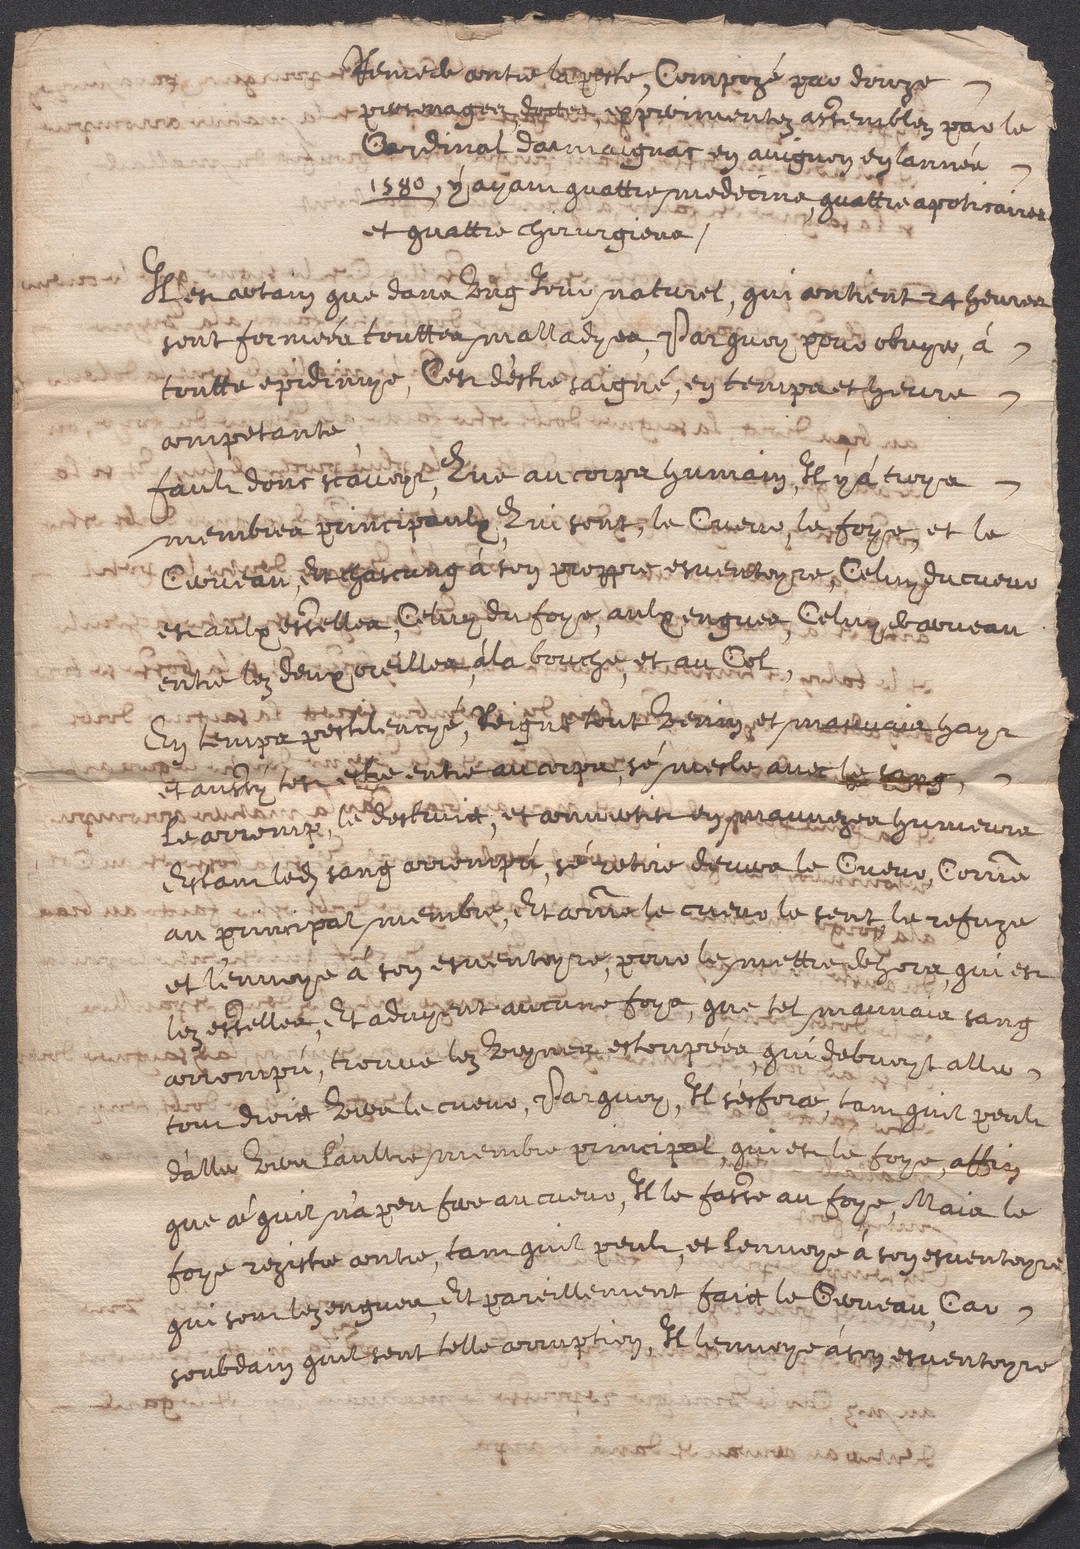 Remede contre la peste, Compozé par douze
personnages, doctes, expérimentez assemblez par le
Cardinal darmaignac en avignon en lannée
1580, y ayant quattre medecins, quattre apoticaires
et quattre chirurgiens /
Il est certain que dans ung Jour naturel, qui contient 24 heures
sont formées touttes malladyes, Parquoy pour obvyer, à
toutte epidimye, C'est d'estre saigné, en temps et heure
competante,
fault donc sçavoyr, Que au corps humain, Il y à troys
membres principaulx, Qui sont, le Cueur, le foye, et le
Cerveau, Et chascung à son proppre esventoyre, Celuy du cueur
est aulx esselles, Celuy du foye, aulx engues, Celuy de cerveau
entre lez deux oreilles, à la bouche, et au Col,
En temps pestilencyé, Reigne tout Venin et mauvais hayr
et aussy tost estre entré au corps, sé mesle avec le sang,
Le corromp, le destruict, et convertist en mauvezes humeurs
Estant led sang corrompú, sé retire devers le Cueur, Comme
au principal membre, Et comme le cueur le sent, le refuze
et l'envoye à son esventoyre, pour le mettre dehors, qui est
lez esselles, Et advyent aucune foys, que tel mauvais sang
corrompú, trouve lez Veynes estouprées, qui debvoyt aller
tout droict Vers le cueur, Parquoy, Il s'esforce, tant quil peult
d'aller Vers l'aultre membre principal, qui est le foye, affin
que cé quil n'a peu fre au cueur, Il le fasse au foye, Mais le
foye reziste contre, tant quil peult, et lenvoye à son esventoyre
qui sont lez engues, Et pareillement faict le Cerveau, Car
soubdain quil sent telle corruption, Il lenvoye à son esventoyre